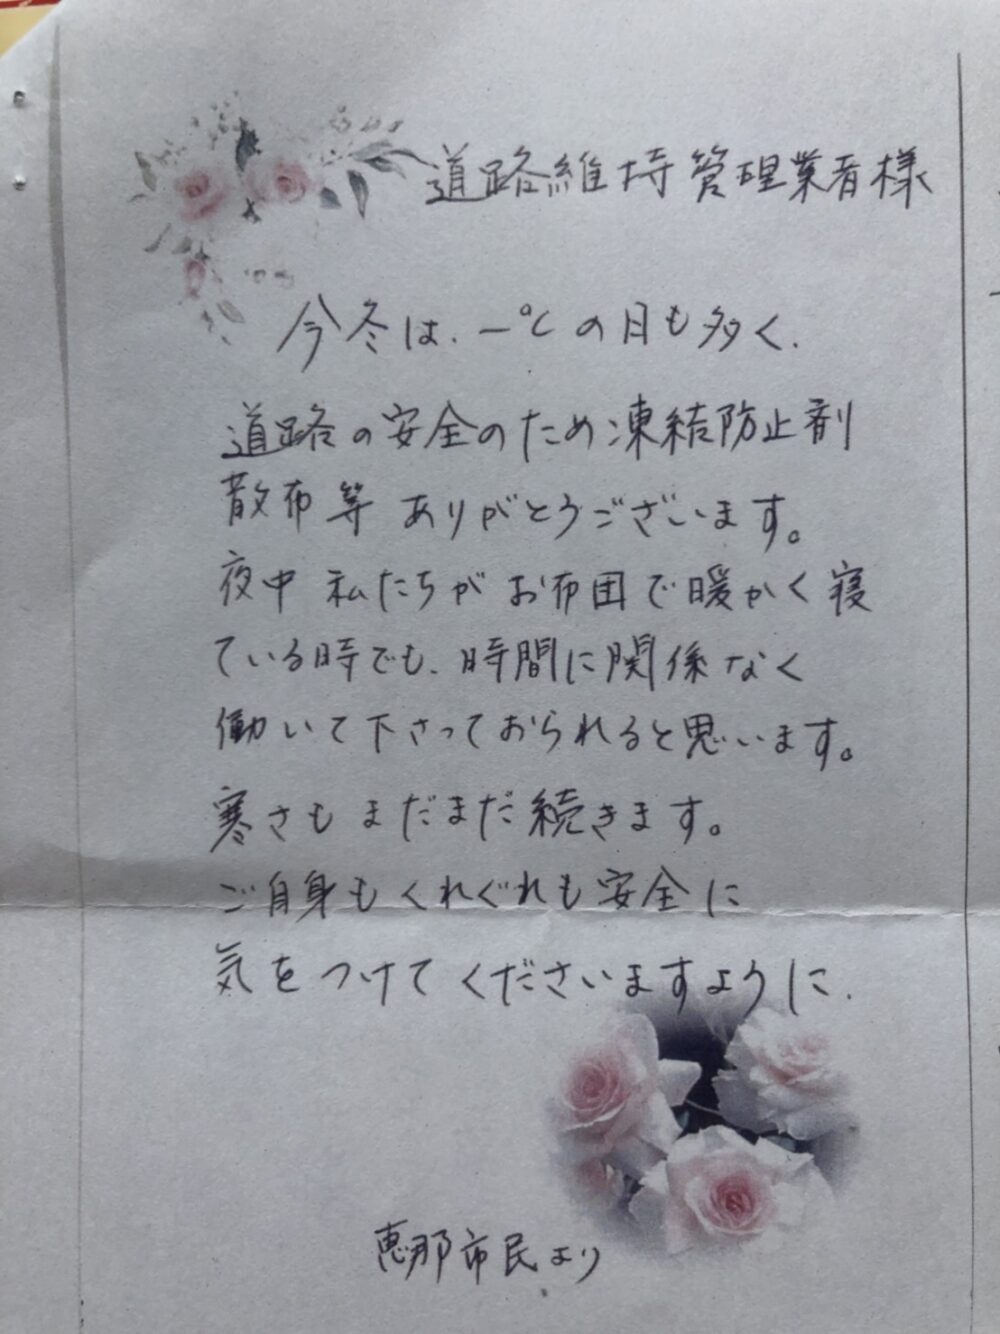 道路維持管理業者様
今冬は、一℃の日も多く、
道路の安全のため凍結防止剤
散布等ありがとうございます。
夜中 私たちがお布団で暖かく寝
ている時でも、時間に関係なく
働いて下さっておられると思います。
寒さもまだまだ続きます。
ご自身もくれぐれも安全に
気をつけてくださいますように、
恵那市民より